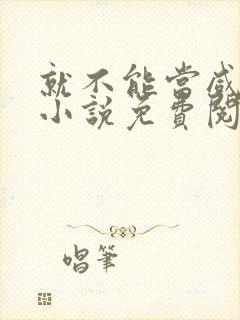 就不能当咸
小說免費閱
唱筆